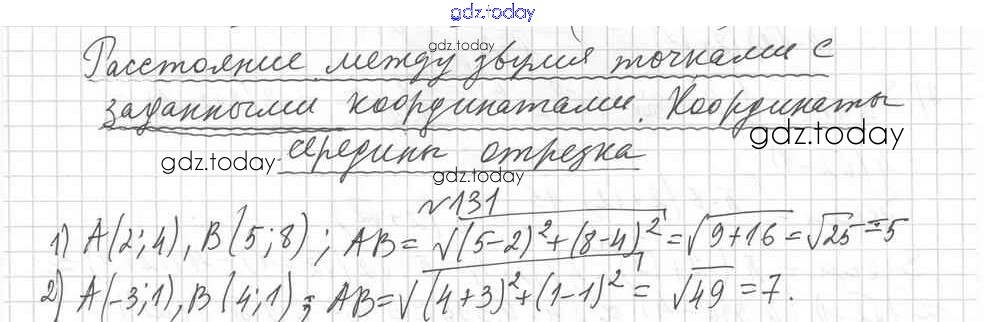 gdz.today
Расстояние между двумя точками с
gdz.today
заданными координатами. Координаты
gdz.today
середины отрезка
gdz.today
gdz.today
№131
1) A(2;4), B(5;8); AB = √((5-2)²+(8-4)²) = √(9+16) = √25 = 5
2) A(-3;1), B(4;1); AB = √((4+3)²+(1-1)²) = √49 = 7.